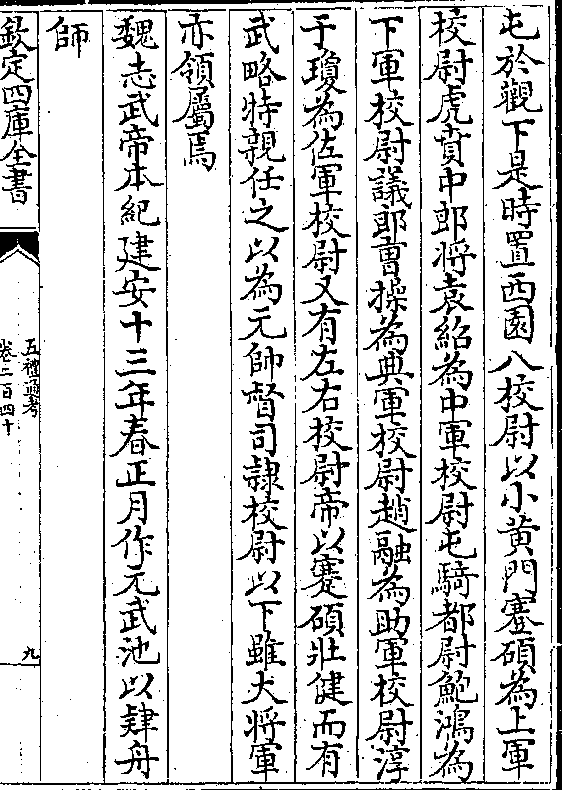 屯於觀下是時置西園八校尉以小黃門蹇碩為上軍
校尉虎賁中郎將袁紹為中軍校尉屯騎都尉鮑鴻為
下軍校尉議郎曹操為典軍校尉趙融為助軍校尉淳
于瓊為佐軍校尉又有左右校尉帝以蹇碩壯健而有
武略特親任之以為元帥督司隷校尉以下雖大將軍
亦領屬焉
魏志武帝本紀建安十三年春正月作元武池以肄舟
師
欽定四庫全書
五禮通考
卷二百四十
九